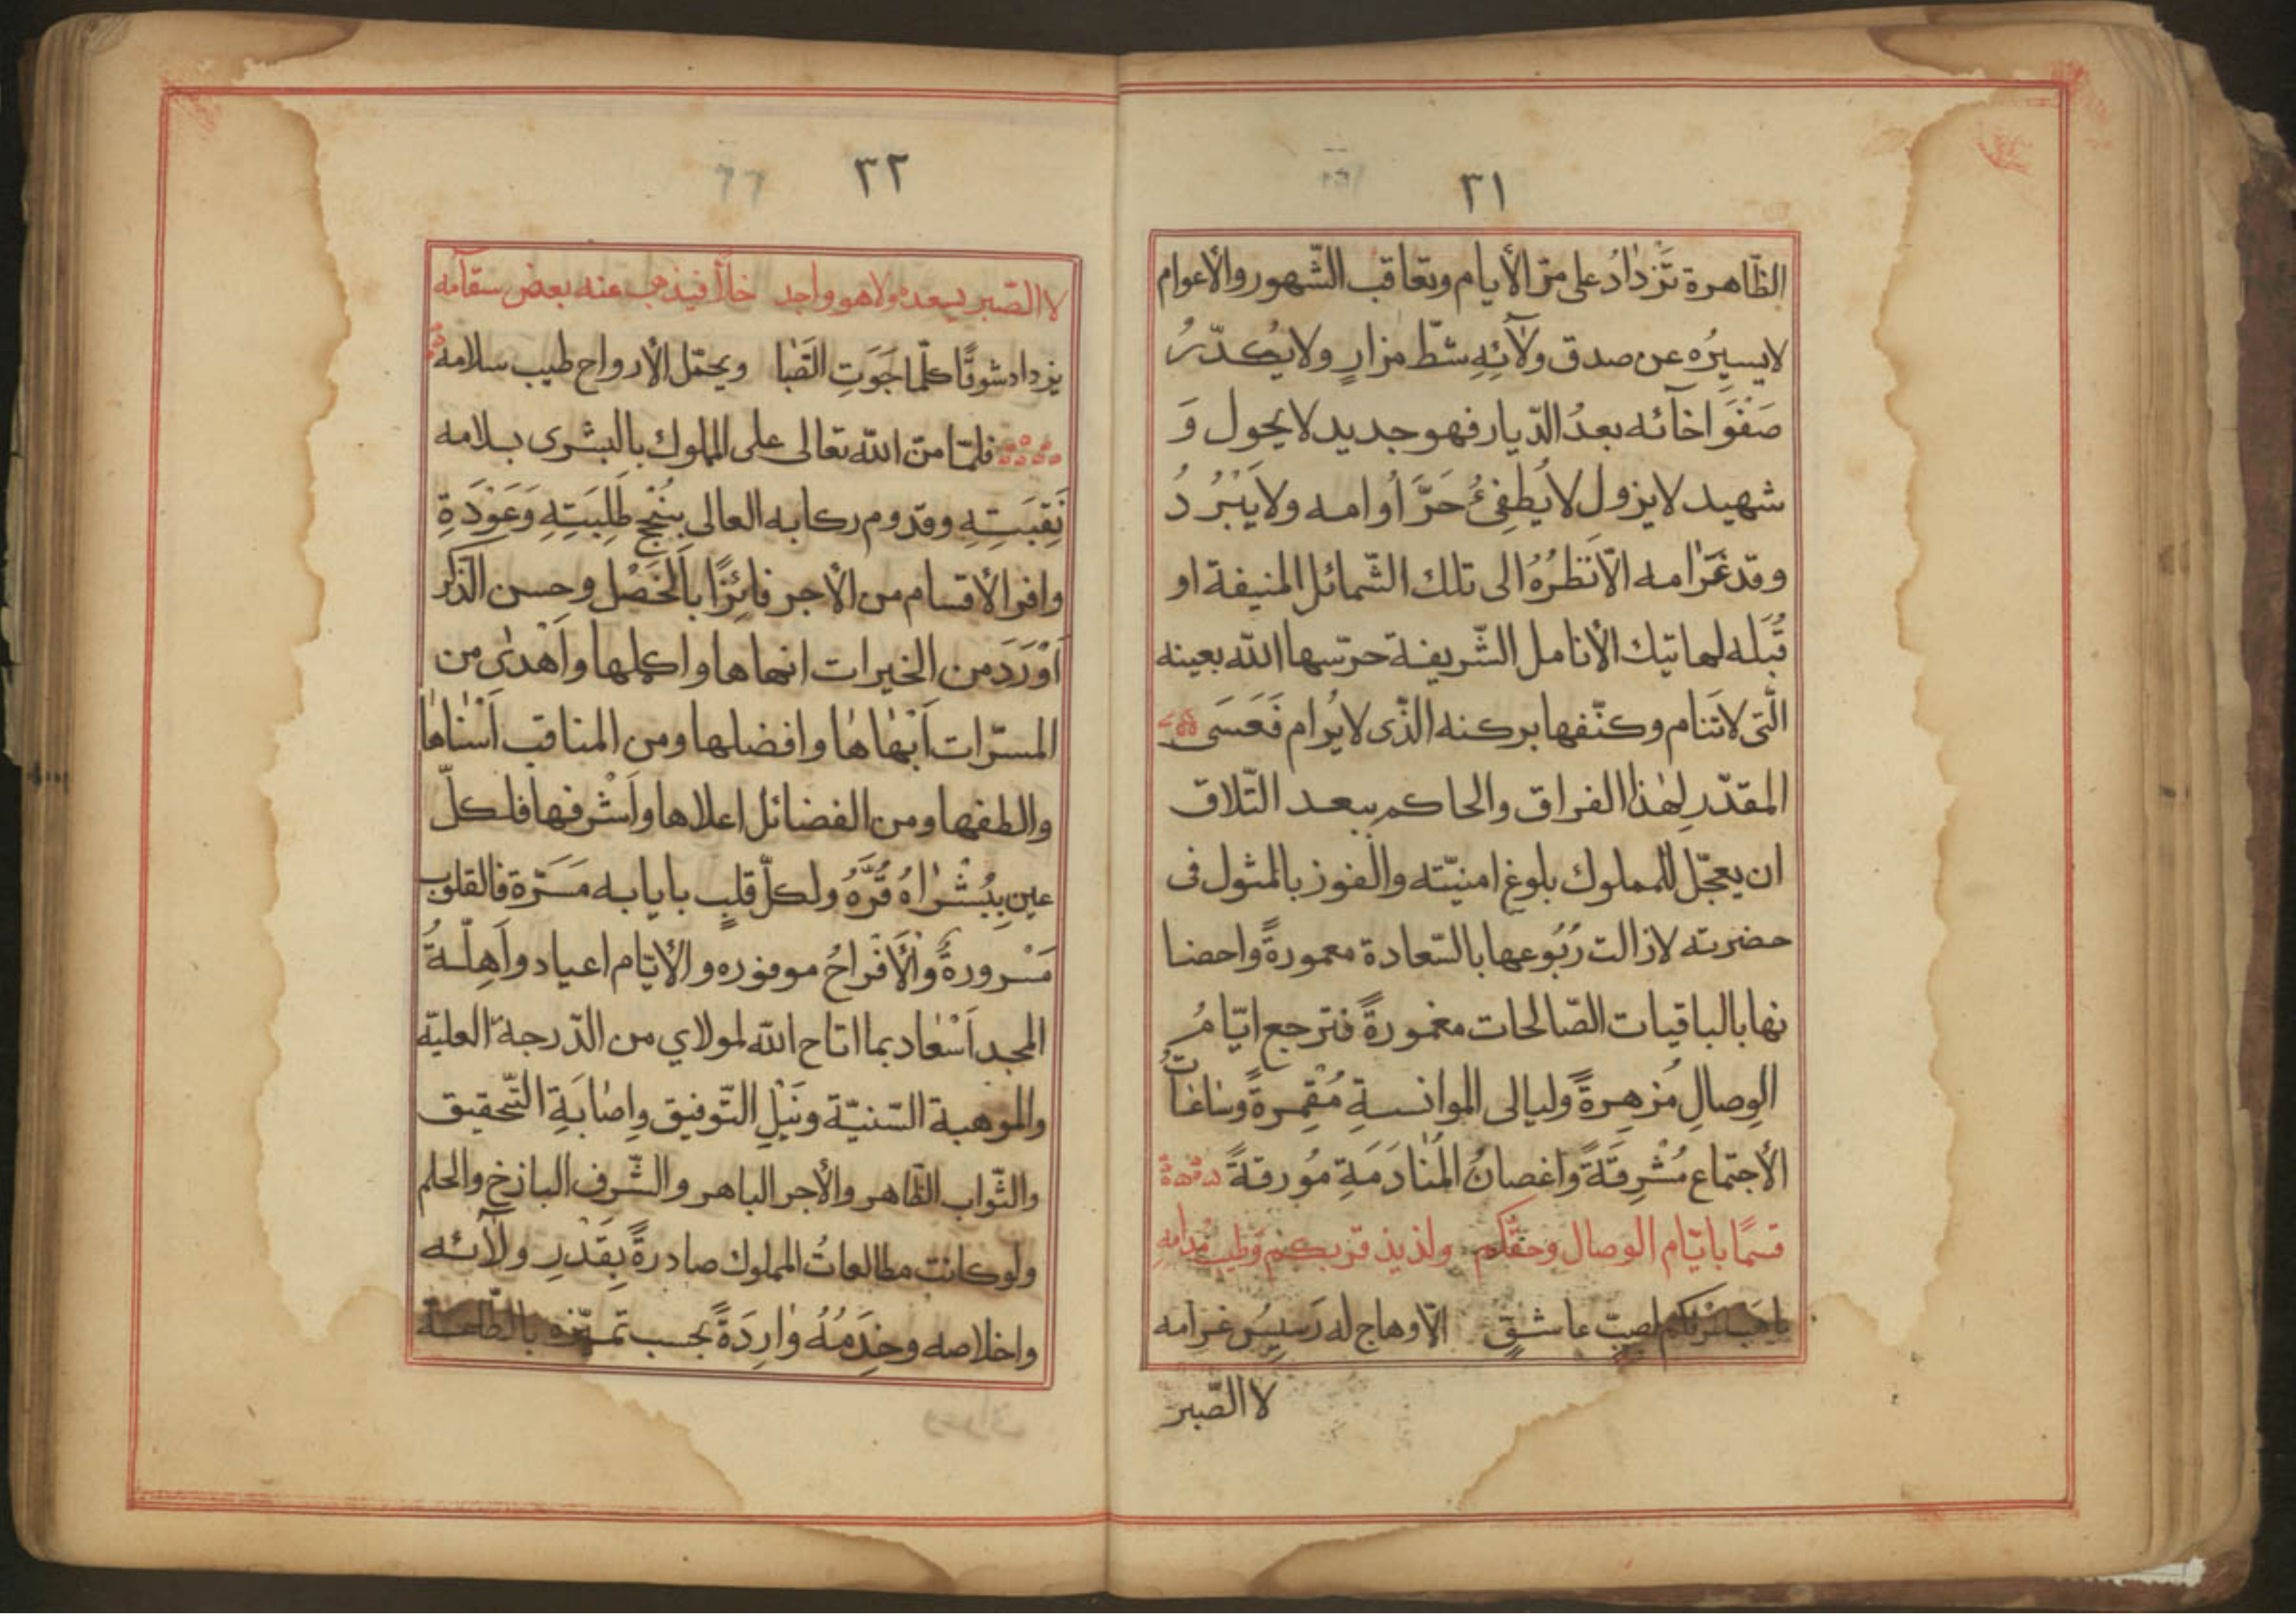 ٣١
الظّاهرة تَزْدٰادُ على مرّ الأيام وتعاقب الشّهور والأعوام
لايسيره عن صدق ولآئِهِ شطّ مزارٍ ولايكدّرُ
صَفْوَ اخآئه بعدُ الدّيار فهو جديد لايحول وَ
شهيد لايزول لايُطفِئُ حَرَّ أُوامه ولايَبْرُدُ
وقد غَرٰامه الاّ نَظَرُهُ الى تلك الشّمائل المنيفة او
قُبَله لهاتيك الأنامل الشّريفة حرسها الله بعينه
الّتى لاتنام وكنّفها بركنه الذّى لايُرام فَعَسَى
المقدّر لِهٰذا الفراق والحاكم ببعد التّلاق
ان يعجّل للمملوك بلوغ امنيّته والفوز بالمثول فى
حضرته لازالت رُبُوعها بالسّعادة معمورةً واحضا
نها بالباقيات الصّالحات مغمورةً فترجع ايّامُ
الوِصالِ مُزهِرةً وليالى الموانسةِ مُقْمِرةً وسٰاعٰاتُ
الأجتماع مُشْرِقَةً واغصانُ المُنٰادَمَةِ مُورقةً
قسمًا بايّام الوصال وحقّكم ولذيذ قربكم وطيب مُدامه
لصبّ عاشقٍ الاّ وهاج له رَسِيسُ غرامه
لا الصّبر
٣٢
لا الصّبر يسعده ولاهو واجد خلأ فيذهب عنه بعض سقآمه
يزداد شوقًا كلّما جَوَتِ الصَّبٰا ويحمّل الأرواح طيب سلامه
فلمّا منّ الله تعالى على المملوك بالبشرى بسلامه
نَقِبَتِهِ وقدوم ركابه العالى بنُجْحِ طَلِبَتِهِ وَعَوْدَةِ
وافر الأقسام من الأجر فائِزًا بالخَصْلِ وحسن الذّكر
اَوْرَدَ من الخيرات انهاها واكملها واَهْدىٰ من
المسرّات اَبْهٰاهٰا وافضلها ومن المناقب اَسْنٰاهٰا
والطفها ومن الفضائل اعلاها واَشْرفها فلكلّ
عين بِبُشْرٰاهُ قُرَّهُ ولكلّ قلبٍ بايابه مَسَرّة فالقلوب
مَسْرورةً والأَفْرٰاحُ موفوره والأيّام اعياد واَهِلّةُ
المجد اَسْعٰاد بما اتاح الله لمولاي من الدّرجة العليّة
والموهبة السّنيّة ونَيْلِ التّوفيق وإصٰابَةِ التّحقيق
والثّواب الظّاهر والأجر الباهر والشّرف البازخ والحلم
ولو كانت مطالعاتُ المملوك صادرةً بِقَدْرِ ولآئه
واخلاصه وخِدَمُهُ وٰارِدَةً بحسب تميّزه بالطّاعة